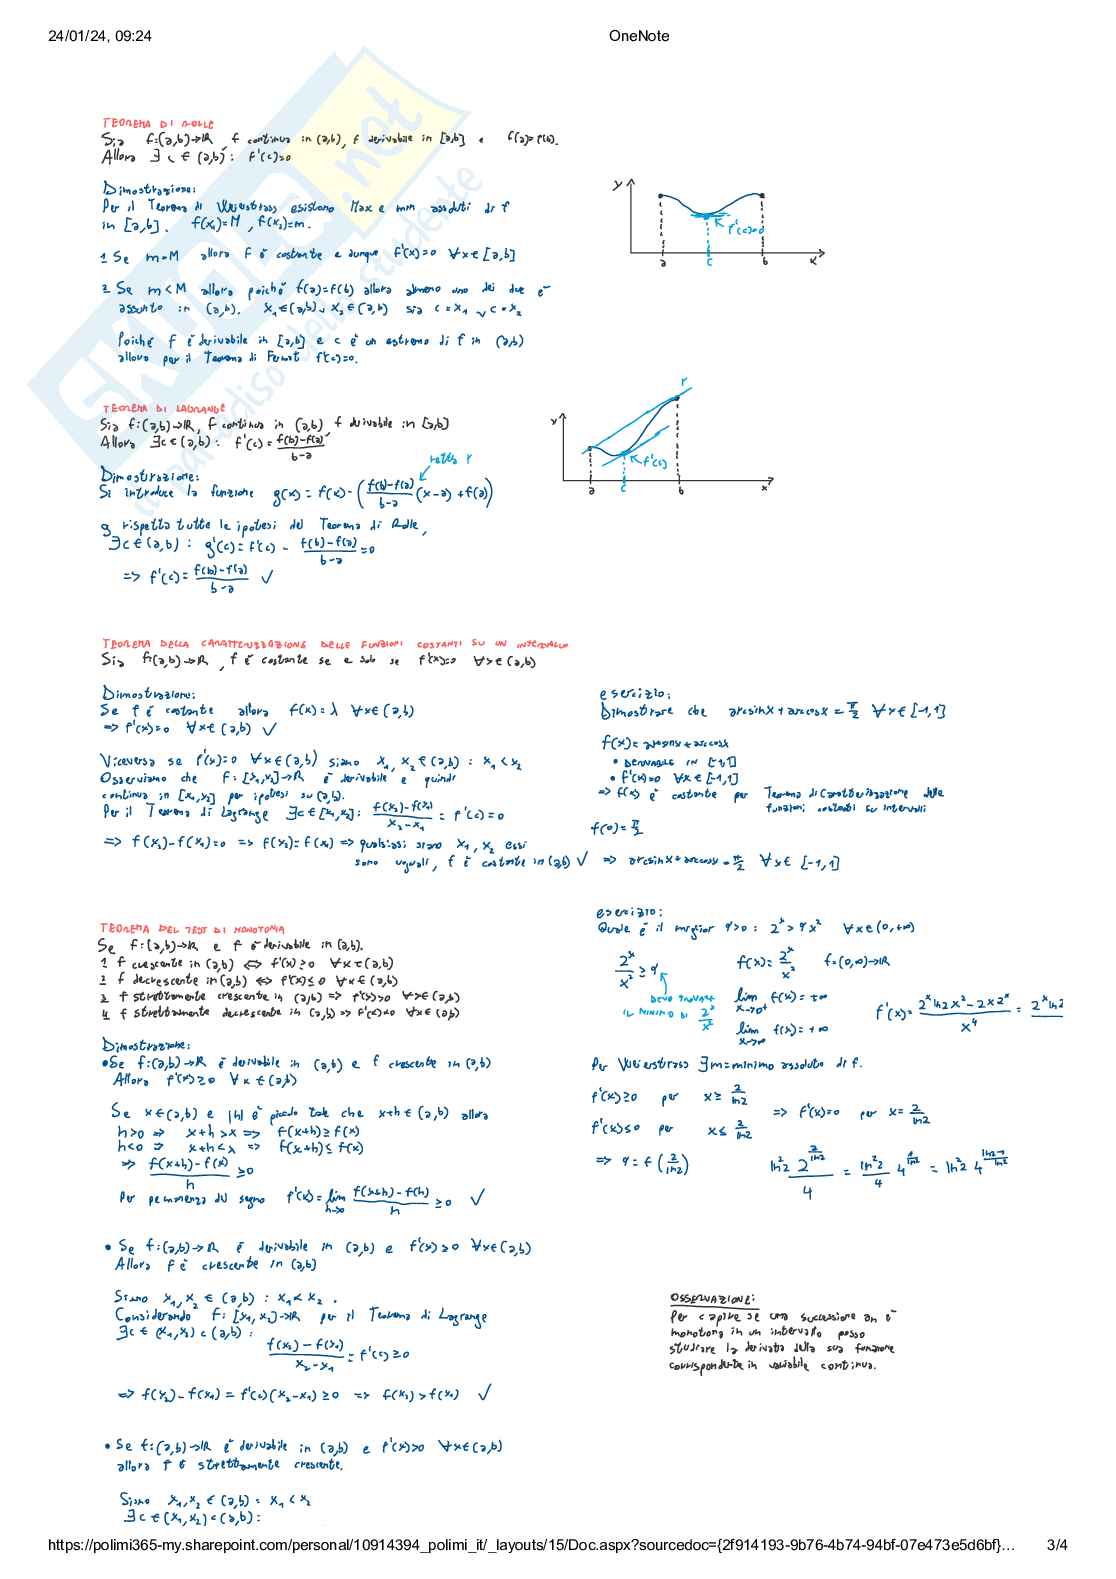 24/01/24, 09:24
OneNote
TEOREMA DI ROLLE
Sia f:(a,b)→ℝ f continua in (a,b), f derivabile in [a,b] e f(a)=f(b).
Allora ∃ c ∈ (a,b): f'(c)=0
Dimostrazione:
Per il Teorema di Weierstrass esistono Max e min assoluti di f
in [a,b]. f(x₁)=M, f(x₂)=m.
1 Se m=M allora f è costante e dunque f'(x)=0 ∀x∈[a,b]
2 Se m<M allora poiché f(a)=f(b) allora almeno uno dei due è
assunto in (a,b). x₁∈(a,b) ∨ x₂∈(a,b) sia c=x₁ ∨ c=x₂
Poiché f è derivabile in [a,b] e c è un estremo di f in (a,b)
allora per il Teorema di Fermat f'(c)=0.
y
f'(c)=0
a c b x
TEOREMA DI LAGRANGE
Sia f:(a,b)→ℝ, f continua in (a,b) f derivabile in [a,b]
Allora ∃c∈(a,b): f'(c)=(f(b)-f(a))/(b-a)
retta r
Dimostrazione:
Si introduce la funzione g(x)=f(x)-((f(b)-f(a))/(b-a)(x-a)+f(a))
g rispetta tutte le ipotesi del Teorema di Rolle,
∃c∈(a,b): g'(c)=f'(c)-(f(b)-f(a))/(b-a)=0
=> f'(c)=(f(b)-f(a))/(b-a) ✓
r
y
f'(c)
a c b x
TEOREMA DELLA CARATTERIZZAZIONE DELLE FUNZIONI COSTANTI SU UN INTERVALLO
Sia f:(a,b)→ℝ, f è costante se e solo se f'(x)=0 ∀x∈(a,b)
Dimostrazione:
Se f è costante allora f(x)=λ ∀x∈(a,b)
=> f'(x)=0 ∀x∈(a,b) ✓
Viceversa se f'(x)=0 ∀x∈(a,b) siano x₁,x₂∈(a,b): x₁<x₂
Osserviamo che f:[x₁,x₂]→ℝ è derivabile e quindi
continua in [x₁,x₂] per ipotesi su (a,b).
Per il Teorema di Lagrange ∃c∈[x₁,x₂]: (f(x₂)-f(x₁))/(x₂-x₁)=f'(c)=0
=> f(x₂)-f(x₁)=0 => f(x₂)=f(x₁) => qualsiasi siano x₁,x₂ essi
sono uguali, f è costante in (a,b) ✓
esercizio:
Dimostrare che arcsinx+arccosx=π/2 ∀x∈[-1,1]
f(x)=arcsinx+arccosx
• DERIVABILE IN [-1,1]
• f'(x)=0 ∀x∈[-1,1]
=> f(x) è costante per Teorema di Caratterizzazione delle
funzioni costanti su intervalli
f(0)=π/2
=> arcsinx+arccosx=π/2 ∀x∈[-1,1]
TEOREMA DEL TEST DI MONOTONIA
Se f:(a,b)→ℝ e f è derivabile in (a,b).
1 f crescente in (a,b) <=> f'(x)≥0 ∀x∈(a,b)
2 f decrescente in (a,b) <=> f'(x)≤0 ∀x∈(a,b)
3 f strettamente crescente in (a,b) => f'(x)>0 ∀x∈(a,b)
4 f strettamente decrescente in (a,b) => f'(x)<0 ∀x∈(a,b)
Dimostrazione:
•Se f:(a,b)→ℝ è derivabile in (a,b) e f crescente in (a,b)
Allora f'(x)≥0 ∀x∈(a,b)
Se x∈(a,b) e |h| è piccolo tale che x+h∈(a,b) allora
h>0 => x+h>x => f(x+h)≥f(x)
h<0 => x+h<x => f(x+h)≤f(x)
=> (f(x+h)-f(x))/h ≥0
Per permanenza del segno f'(x)=lim h→0 (f(x+h)-f(h))/h ≥0 ✓
• Se f:(a,b)→ℝ è derivabile in (a,b) e f'(x)≥0 ∀x∈(a,b)
Allora f è crescente in (a,b)
Siano x₁,x₂∈(a,b): x₁<x₂.
Considerando f:[x₁,x₂]→ℝ per il Teorema di Lagrange
∃c∈(x₁,x₂)⊂(a,b):
(f(x₂)-f(x₁))/(x₂-x₁)=f'(c)≥0
=> f(x₂)-f(x₁)=f'(c)(x₂-x₁)≥0 => f(x₂)>f(x₁) ✓
• Se f:(a,b)→ℝ è derivabile in (a,b) e f'(x)>0 ∀x∈(a,b)
allora f è strettamente crescente.
Siano x₁,x₂∈(a,b): x₁<x₂
∃c∈(x₁,x₂)⊂(a,b):
esercizio:
Quale è il miglior φ>0: 2ˣ>φx² ∀x∈(0,+∞)
2ˣ/x² ≥φ
DEVO TROVARE
IL MINIMO DI 2ˣ/x²
f(x)=2ˣ/x² f=(0,∞)→ℝ
lim x→0⁺ f(x)=+∞
lim x→∞ f(x)=+∞
f'(x)=(2ˣln2x²-2x2ˣ)/x⁴ = 2ˣln2
Per Weierstrass ∃m=minimo assoluto di f.
f'(x)≥0 per x≥2/ln2
f'(x)≤0 per x≤2/ln2
=> f'(x)=0 per x=2/ln2
=> φ=f(2/ln2)
ln²2 2^(2/ln2)/4 = ln²2/4 4^(1/ln2) = ln²2 4^((ln2-1)/ln2)
OSSERVAZIONE:
Per capire se una successione an è
monotona in un intervallo posso
studiare la derivata della sua funzione
corrispondente in variabile continua.
https://polimi365-my.sharepoint.com/personal/10914394_polimi_it/_layouts/15/Doc.aspx?sourcedoc={2f914193-9b76-4b74-94bf-07e473e5d6bf}…
3/4